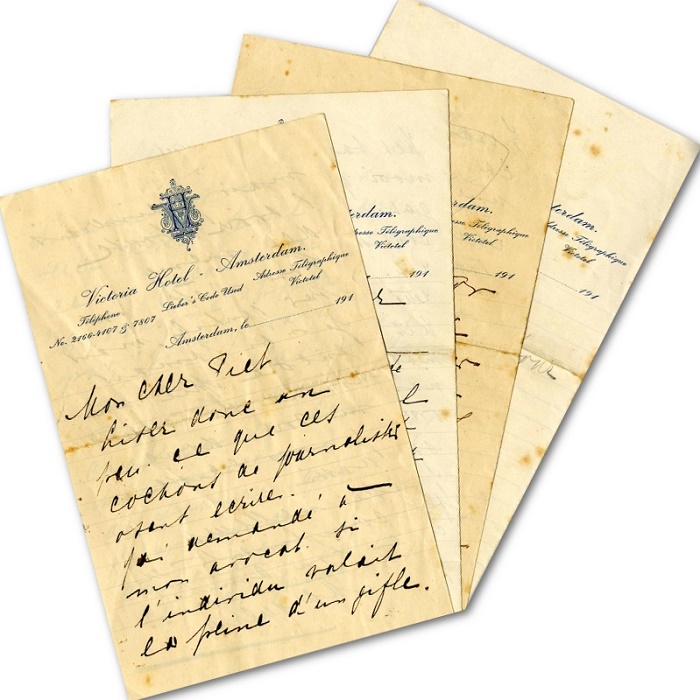 Victoria Hotel - Amsterdam.
Téléphone
No. 2166-4107 & 7807
Lieber's Code Used
Adresse Télégraphique
Victotel
Amsterdam, le 191
Mon cher Piet
donc un
peu ce que ces
cochons de journalistes
osent écrire.
j'ai demandé à
mon avocat si
l'individu valait
la peine d'un gifle.
terdam.
Adresse Télégraphique
Victotel
191
terdam.
Adresse Télégraphique
Victotel
191
terdam.
Adresse Télégraphique
Victotel
191